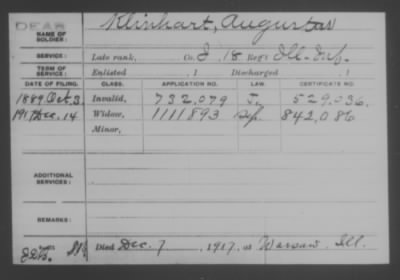 DEAF
NAME OF SOLDIER: Klinhart, Augustus
SERVICE: Late rank, Co. I, 18 Reg't Ill. Inf.
TERM OF SERVICE: Enlisted , 1 Discharged , 1
DATE OF FILING. CLASS. APPLICATION NO. LAW. CERTIFICATE NO.
1889 Oct. 3. Invalid, 732.079 529.036.
1917 Dec. 14 Widow, 1111893 842.086
Minor,
ADDITIONAL SERVICES:
REMARKS:
Died Dec. 7, 1917, at Warsaw, Ill.